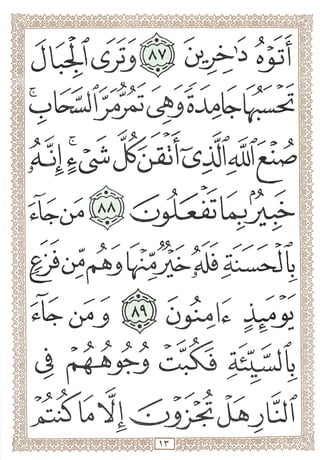 أَتَوْهُ دَٰخِرِينَ ٨٧ وَتَرَى ٱلْجِبَالَ
تَحْسَبُهَا جَامِدَةً وَهِىَ تَمُرُّ مَرَّ ٱلسَّحَابِ ۚ
صُنْعَ ٱللَّهِ ٱلَّذِىٓ أَتْقَنَ كُلَّ شَىْءٍ ۚ إِنَّهُۥ
خَبِيرٌۢ بِمَا تَفْعَلُونَ ٨٨ مَن جَآءَ
بِٱلْحَسَنَةِ فَلَهُۥ خَيْرٌ مِّنْهَا وَهُم مِّن فَزَعٍ
يَوْمَئِذٍ ءَامِنُونَ ٨٩ وَمَن جَآءَ
بِٱلسَّيِّئَةِ فَكُبَّتْ وُجُوهُهُمْ فِى
ٱلنَّارِ هَلْ تُجْزَوْنَ إِلَّا مَا كُنتُمْ
١٣